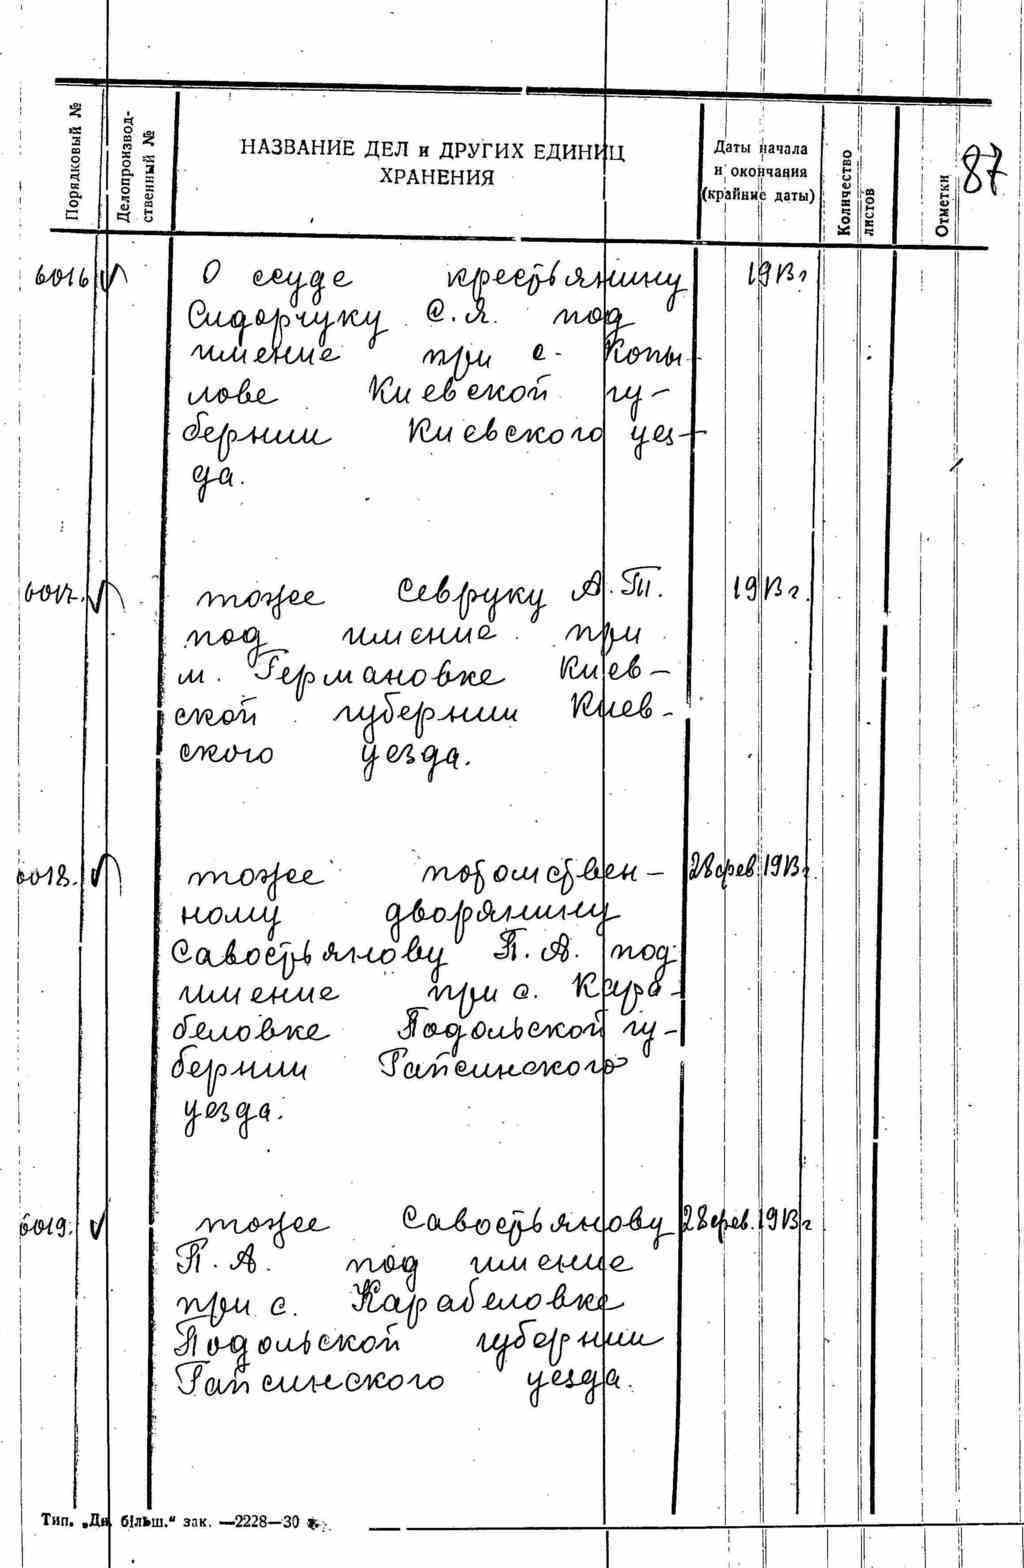 87
Порядковый №
Делопроизвод-
ственный №
НАЗВАНИЕ ДЕЛ и ДРУГИХ ЕДИНИЦ
ХРАНЕНИЯ
Даты начала
и окончания
(крайние даты)
Количество
листов
Отметки
6016 О ссуде крестьянину 1913 г
Сидорчуку С.Я. под
имение при с. Копы-
лове Киевской гу-
бернии Киевского уез-
да.
6017. тоже Севруку А.Т. 1913 г.
под имение при
м. Германовке Киев-
ской губернии Киев-
ского уезда.
6018. тоже потомствен- 28 фев. 1913 г.
ному дворянину
Савостьянову П.А. под
имение при с. Кара-
беловке Подольской гу-
бернии Гайсинского
уезда.
6019. тоже Савостьянову 28 фев. 1913 г
П.А. под имение
при с. Карабеловке
Подольской губернии
Гайсинского уезда.
Тип. „Дн. більш.“ зак. —2228—30